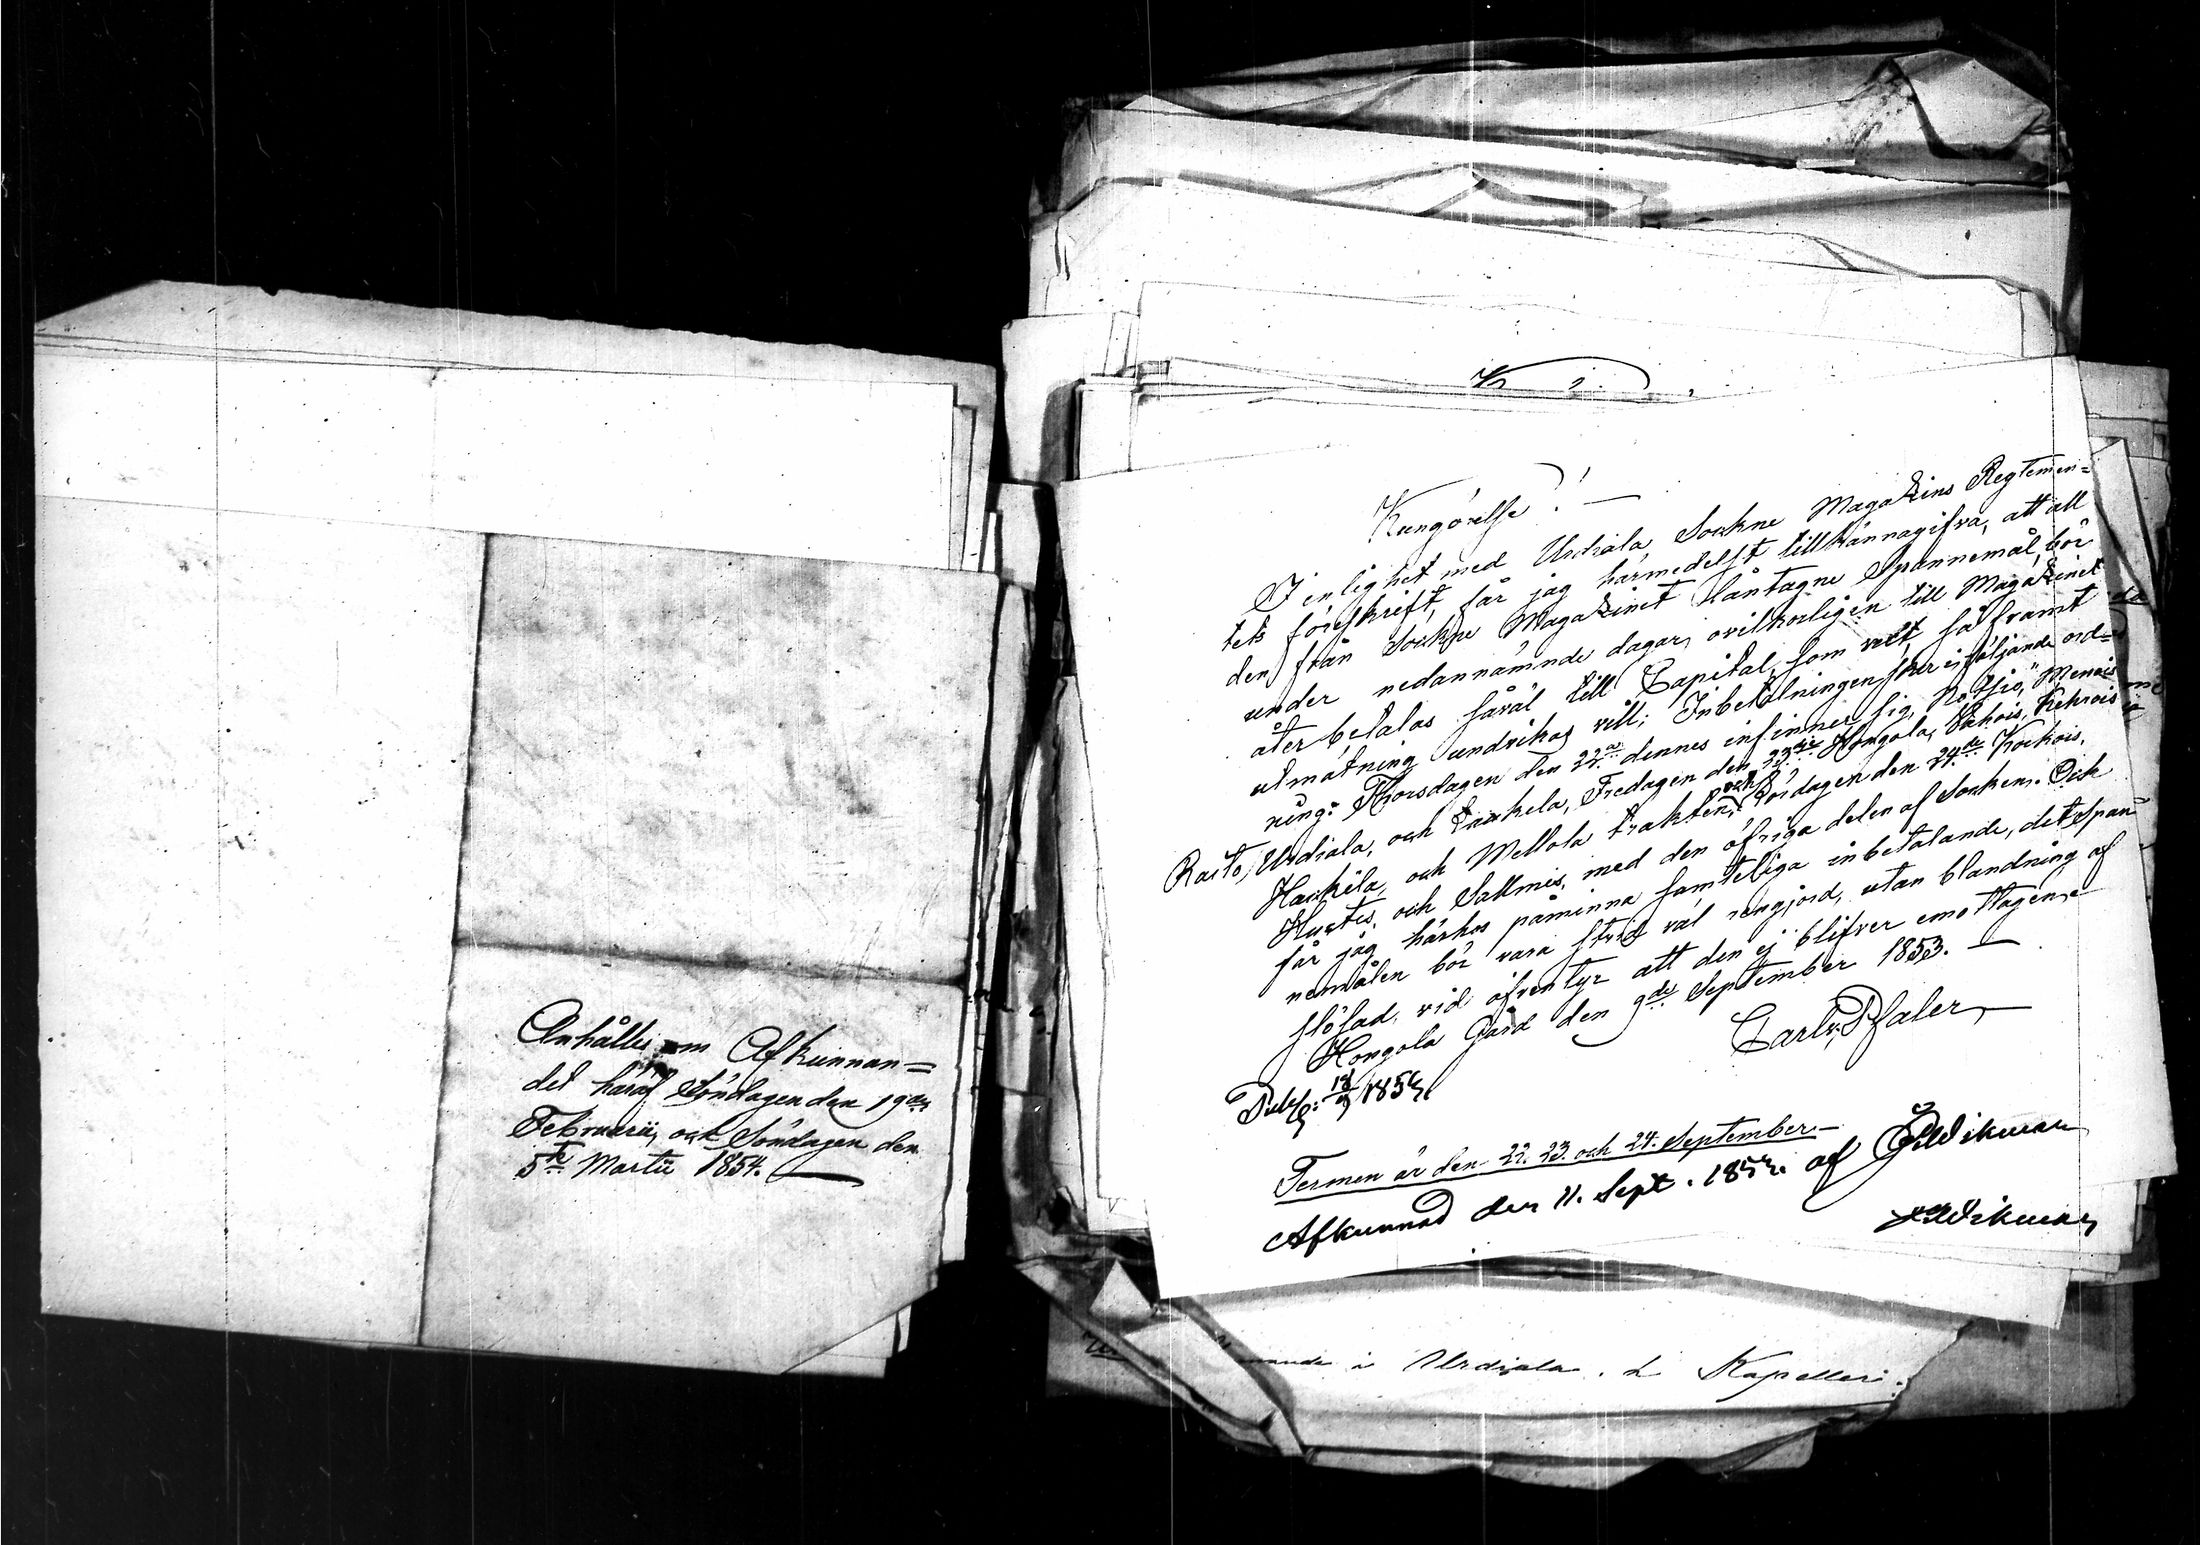 Anhålles om Afkunnan=
det häraf Söndagen den 19de
Februarii, och Söndagen den
5te Martii 1854.
Kungörelse!
I enlighet med Urdiala Sockne Magazins Regtemen=
tets föreskrift, får jag härmedelst tillkännagifva, att all
den från Sockne Magazinet låntagne Spannemål, bör
under nedannämnde dagar, ovilkorligen till Magazinet
återbetalas såväl till Capital som rest, så framt
utmätning undvikas vill; Inbetalningen sker i följande ord=
ning: Thorsdagen den 22a dennes infinner sig, Notsjö, Menois
Rasto, Urdiala, och Laukela, Fredagen den 23die Hongola, Vahois, Kehrois
Hankila, och Mellola trakten, och Lördagen den 24de Kockois,
Hustis, och Salmis, med den öfriga delen af Socken. Och
får jag härhos påminna samteliga inbetalande, det Span
nemålen bör vara väl rengjord, utan blandning af
flösad, vid äfventyr att den ej blifver emottagen.
Hongola Gård den 9de September 1853.
Carl v. Pfaler
Publ: 18/9 1853.
Termen är den 22. 23. och 24. September.
Afkunnad den 11. Sept. 1853. af Wikman
Wikman
i Urdiala. Kapelleri.